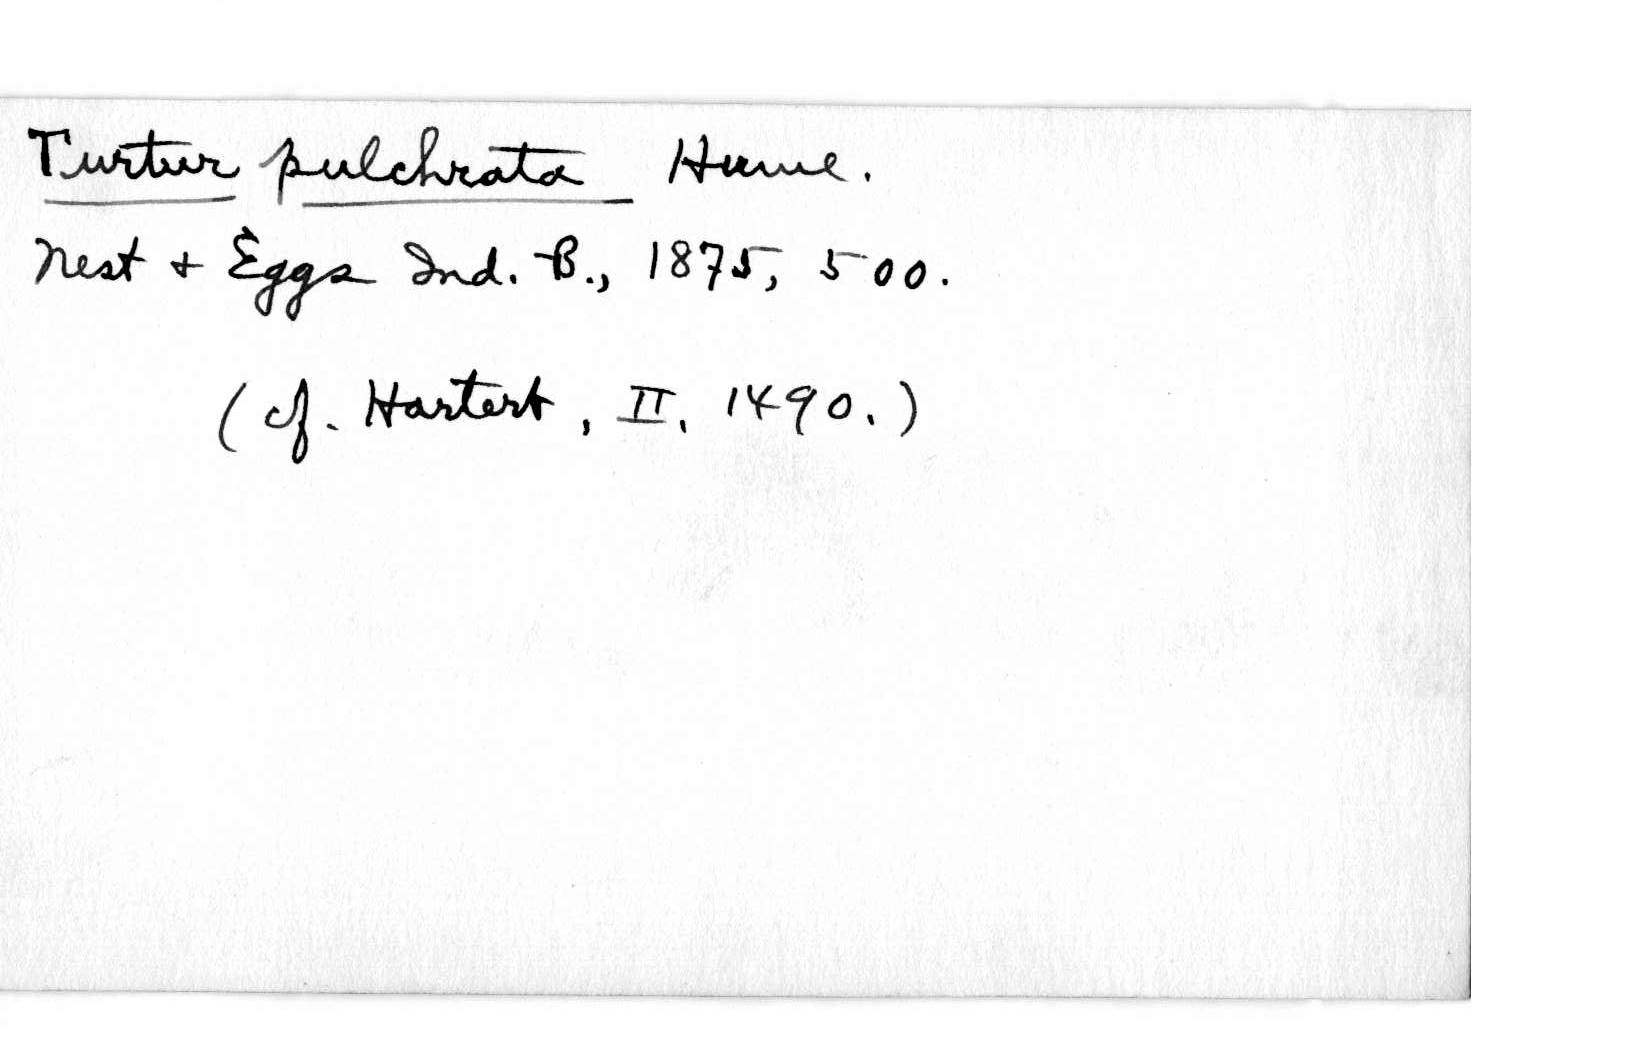 Turtur pulchrata Hume.
Nest + Eggs Ind. B., 1875, 500.
(cf. Hartert, II, 1490.)